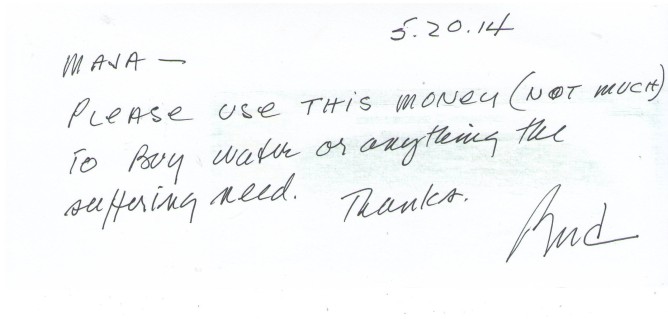 5.20.14
MAJA —
PLEASE USE THIS MONEY (NOT MUCH)
TO Buy water or anything the
suffering need. Thanks.
Bud